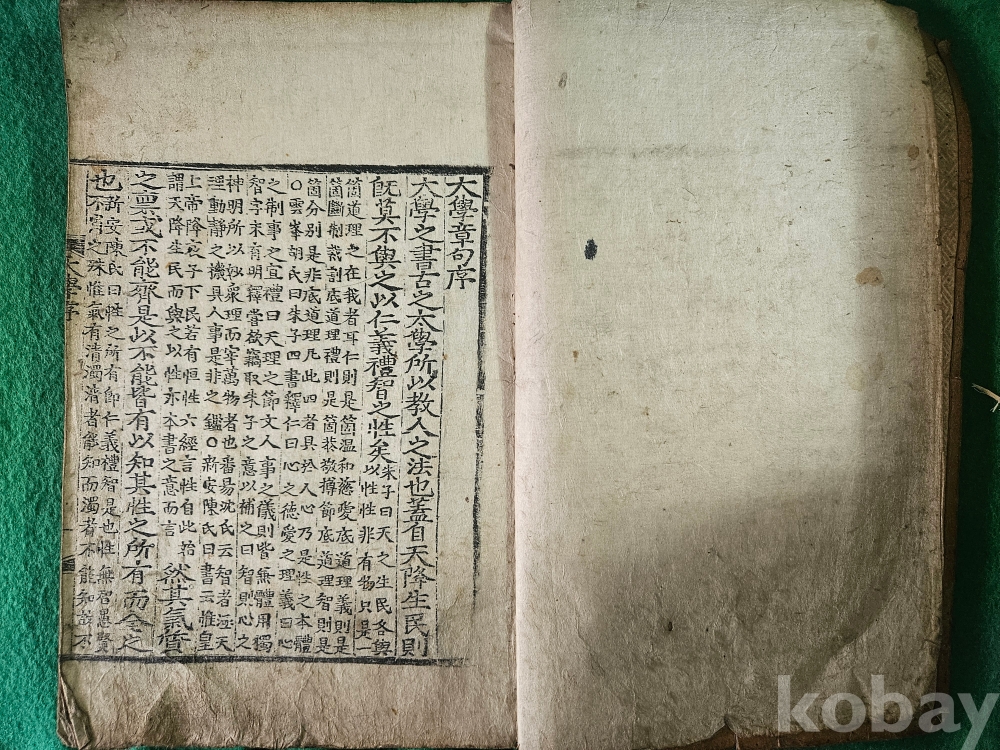 大學章句序
大學之書古之太學所以教人之法也蓋自天降生民則
旣莫不與之以仁義禮智之性矣
朱子曰天之生民各與
以性性非有物只是一
箇道理之在我者耳仁則是箇溫和慈愛底道理義則是
箇斷制裁割底道理禮則是箇恭敬撙節底道理智則是
箇分別是非底道理凡此四者具於人心乃是性之本體
○雲峯胡氏曰朱子四書釋仁曰心之德愛之理義曰心
之制事之宜禮曰天理之節文人事之儀則皆兼體用獨
智字未有明釋嘗欲竊取朱子之意以補之曰智則心之
神明所以妙衆理而宰萬物者也番易沈氏云智者涵天
理動靜之機具人事是非之鑑○新安陳氏曰書云惟皇
上帝降衷于下民若有恒性六經言性自此始
謂天降生民而與之以性亦本書之意而言
然其氣質
之稟或不能齊是以不能皆有以知其性之所有而全之
也
新安陳氏曰性之所有卽仁義禮智是也性無智愚賢
不肖之殊惟氣有淸濁淸者能知而濁者不能知故不
大學序
一
kobay